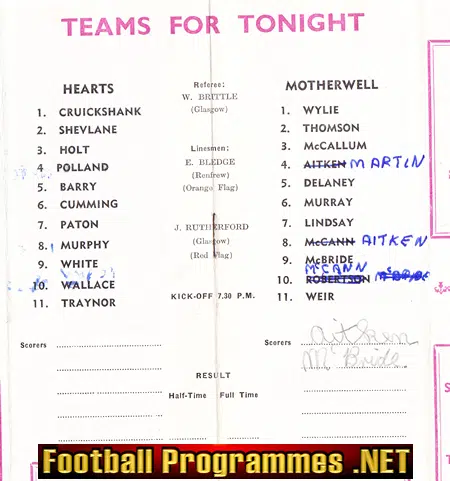 TEAMS FOR TONIGHT
HEARTS
1. CRUICKSHANK
2. SHEVLANE
3. HOLT
4 POLLAND
5. BARRY
6. CUMMING
7. PATON
8. MURPHY
9. WHITE
10. WALLACE
11. TRAYNOR
Referee:
W. BRITTLE
(Glasgow)
Linesmen:
E. BLEDGE
(Renfrew)
(Orange Flag)
J. RUTHERFORD
(Glasgow)
(Red Flag)
KICK-OFF 7.30 P.M.
MOTHERWELL
1. WYLIE
2. THOMSON
3. McCALLUM
4. AITKEN MARTIN
5. DELANEY
6. MURRAY
7. LINDSAY
8. McCANN AITKEN
9. McBRIDE
McCANN
10. ROBERTSON McBRIDE
11. WEIR
Scorers
Scorers
aitken
McBride
RESULT
Half-Time Full Time
Football Programmes .NET